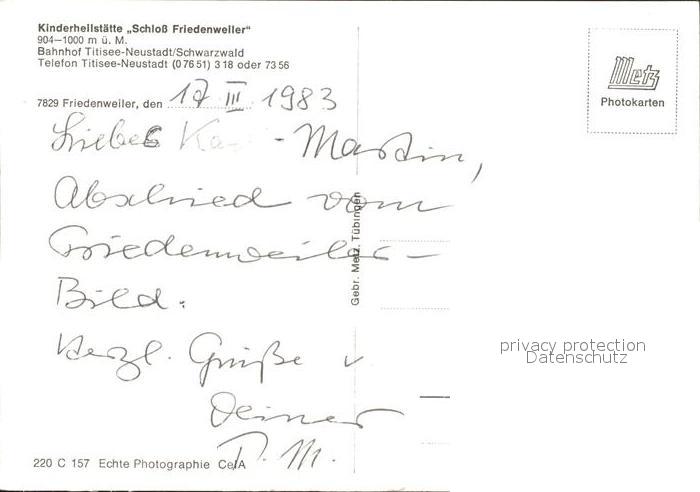 Kinderheilstätte „Schloß Friedenweiler“
904—1000 m ü. M.
Bahnhof Titisee-Neustadt/Schwarzwald
Telefon Titisee-Neustadt (0 76 51) 3 18 oder 73 56
Metz
Photokarten
7829 Friedenweiler, den 17 III 1983
Lieber Ka - Martin,
Abschied vom
Friedenweiler-
Bild.
Herzl. Grüße v
Deiner
P. M.
Gebr. Metz, Tübingen
privacy protection
Datenschutz
220 C 157 Echte Photographie Ce/A